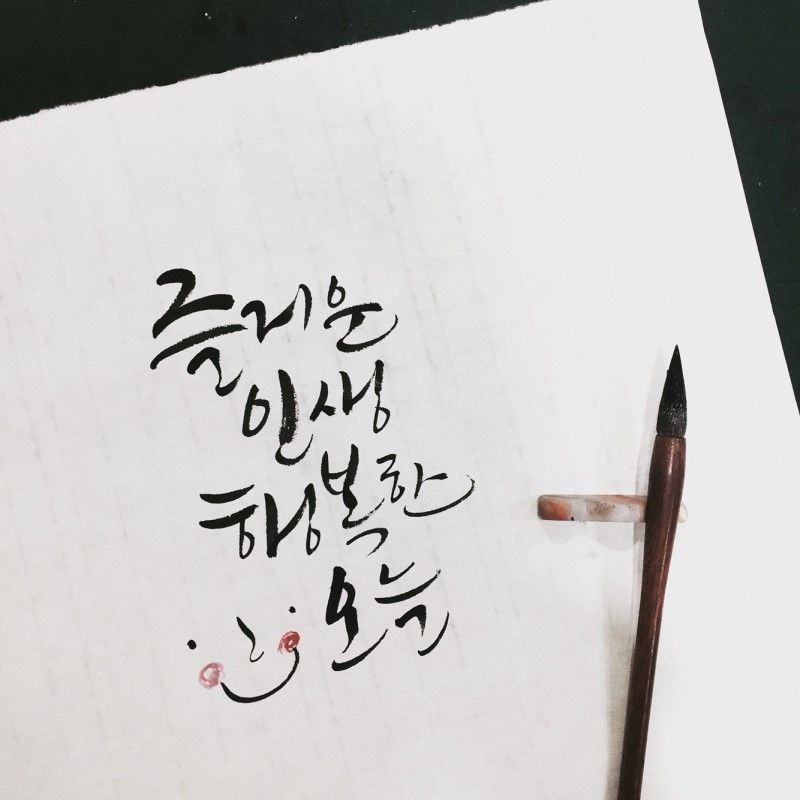 즐거운
인생
행복한
오늘